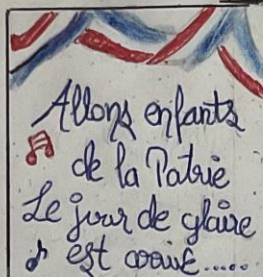 Allons enfants
de la Patrie
Le jour de glaire
est